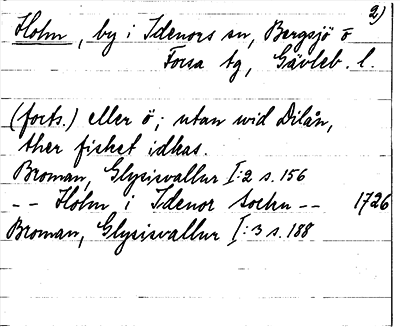 2)
Holm, by i Idenors sn, Bergsjö o
Forsa tg, Gävleb. l.
(forts.) eller ö; utan wid Dilån,
ther fisket idkas.
Broman, Glysisvallur I:2 s. 156
-- Holm i Idenor Sochn -- 1726
Broman, Glysisvallur I:3 s. 188